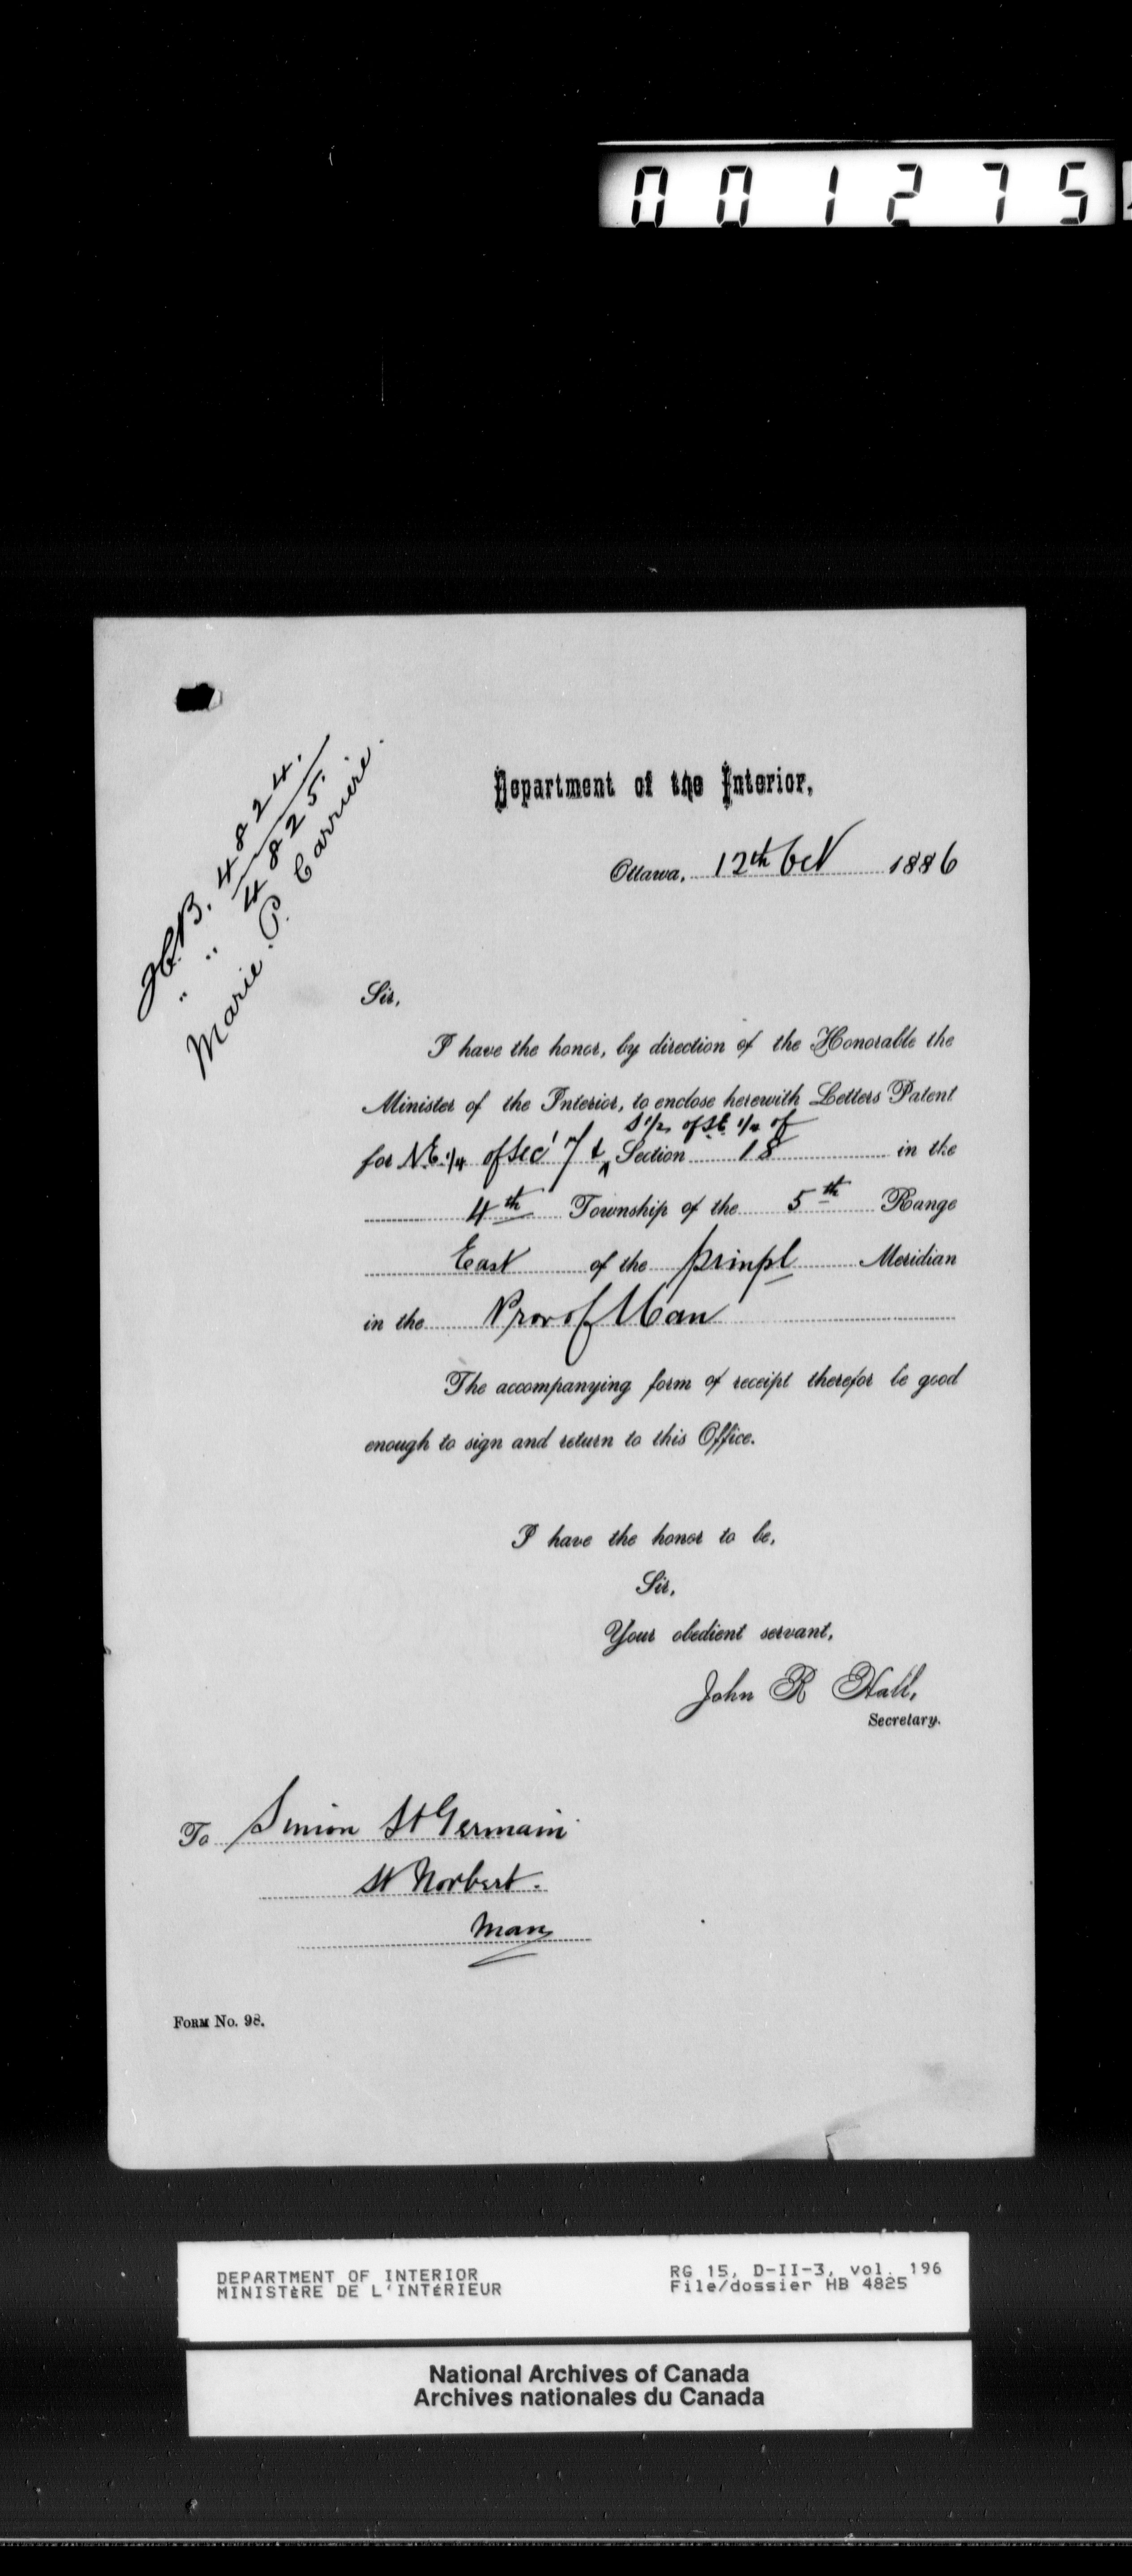 001275
H.B. 4824.
" " 4825.
Marie. P. Carriere.
Department of the Interior,
Ottawa, 12th Oct 1886
Sir,
I have the honor, by direction of the Honorable the
Minister of the Interior, to enclose herewith Letters Patent
S 1/2 of S.E. 1/4 of
for N.E. 1/4 of Sec' 7 & Section 18 in the
4th Township of the 5th Range
East of the prinpl Meridian
in the Prov of Man
The accompanying form of receipt therefor be good
enough to sign and return to this Office.
I have the honor to be,
Sir,
Your obedient servant,
John R Hall,
Secretary.
To Simion St Germain
St Norbert.
Man
FORM No. 98.
DEPARTMENT OF INTERIOR RG 15, D-II-3, vol. 196
MINISTèRE DE L'INTéRIEUR File/dossier HB 4825
National Archives of Canada
Archives nationales du Canada